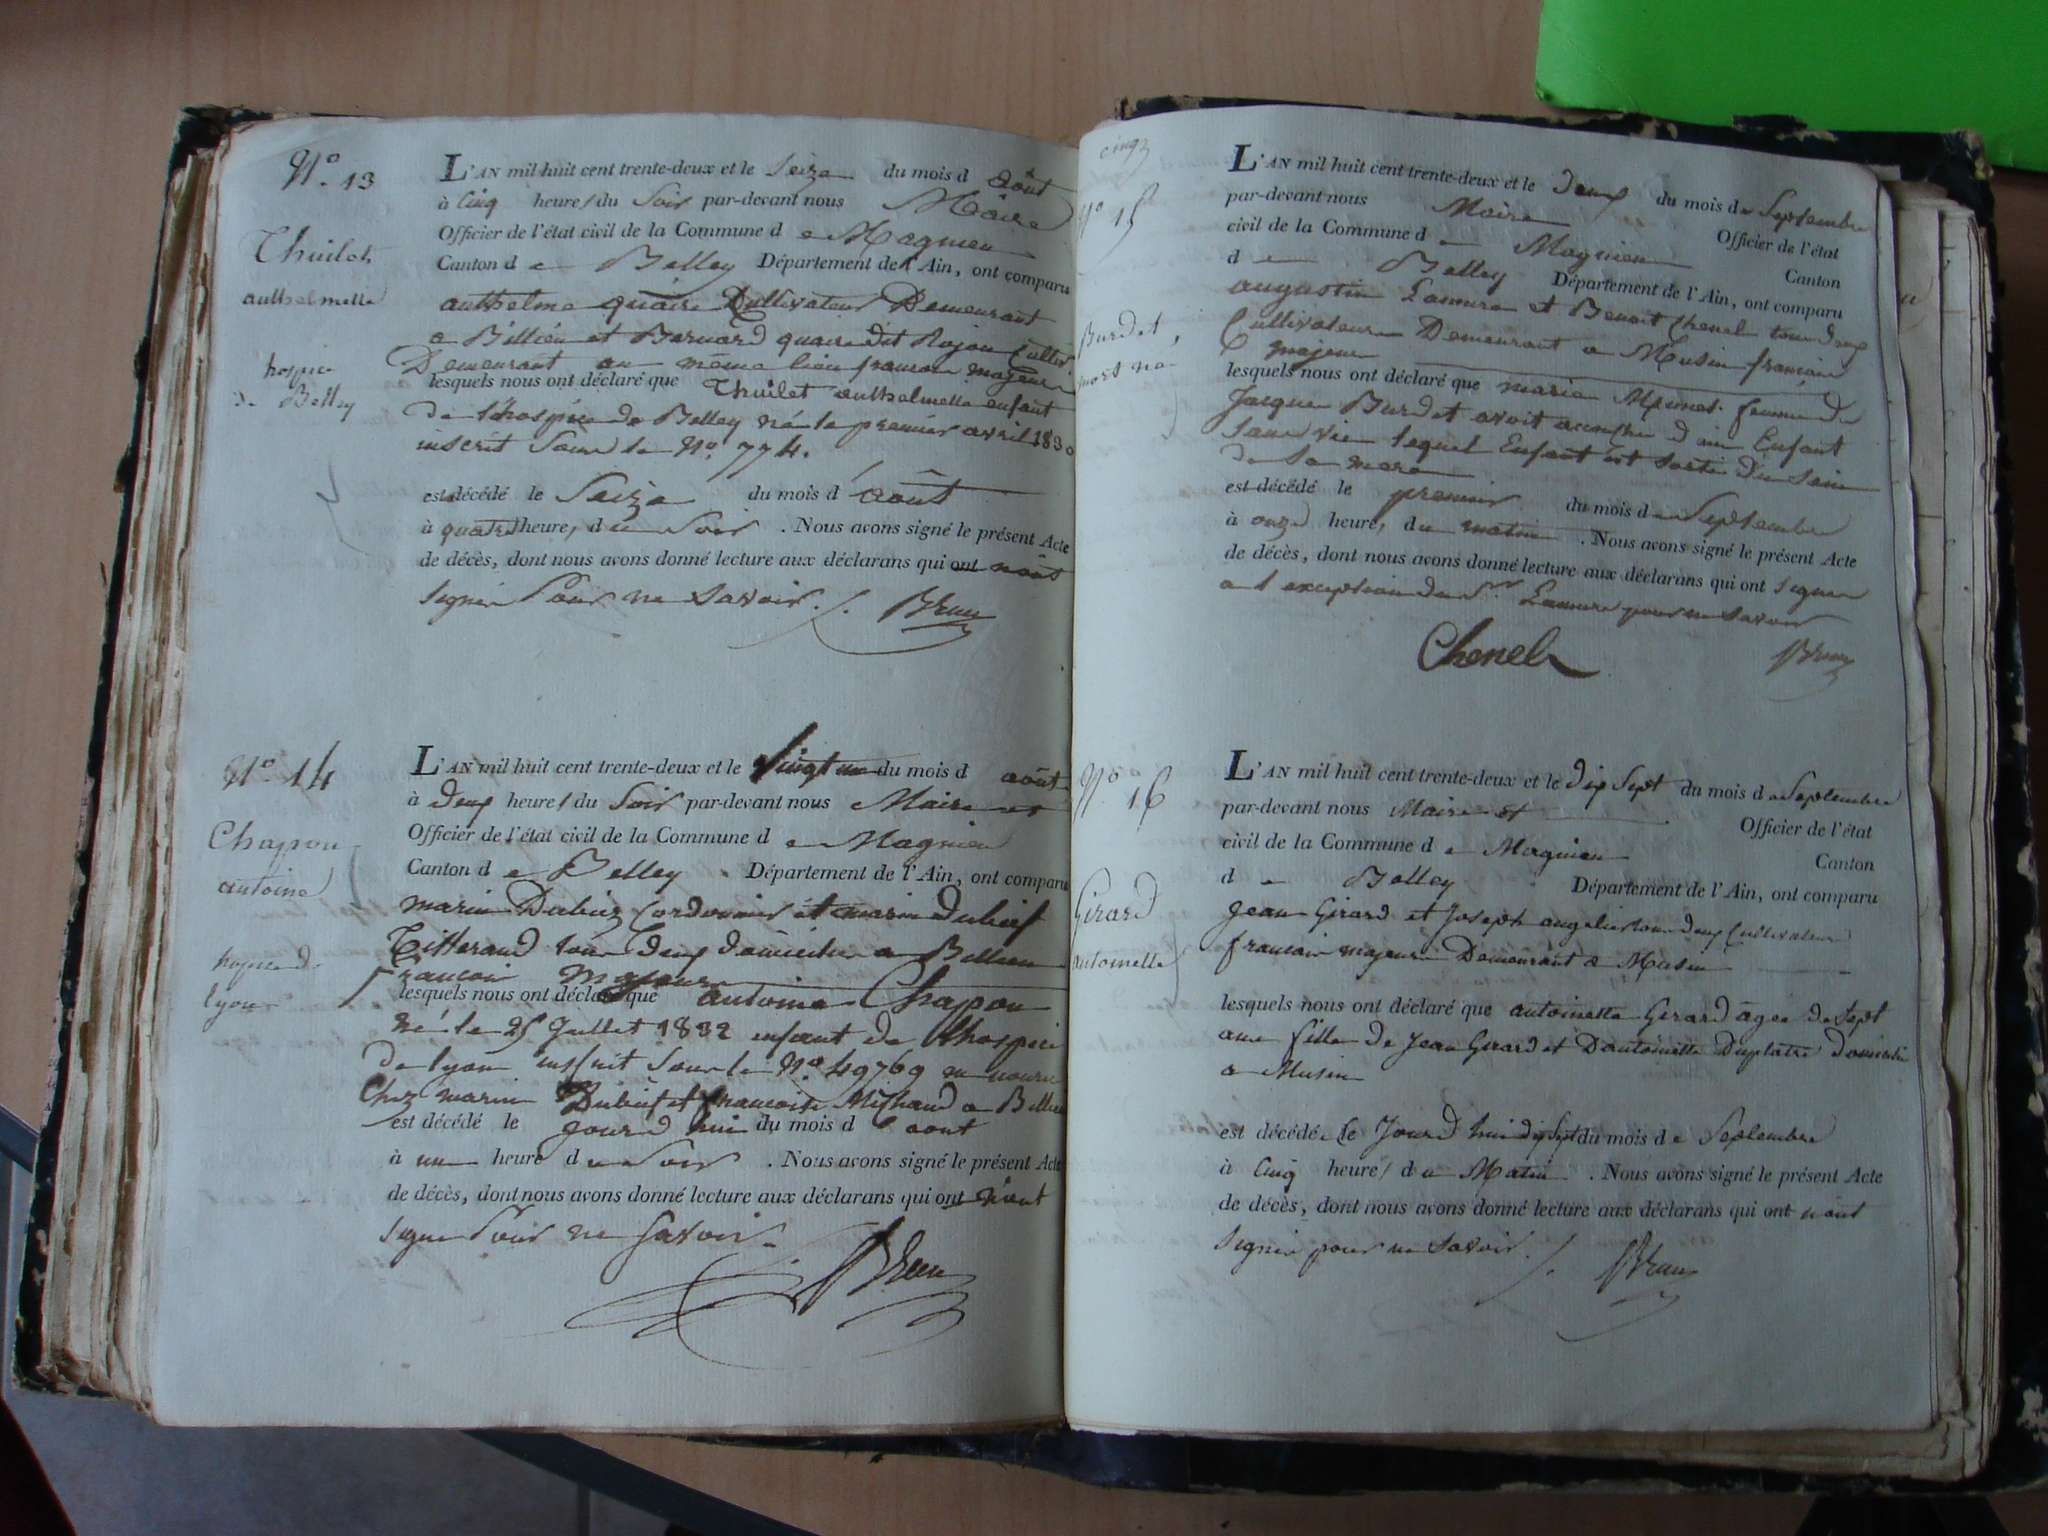 N.o 13
Thuilet
authelmette
hospice
de Belley
L'AN mil huit cent trente-deux et le Seize du mois d août
à Cinq heure/ du Soir par-devant nous Maire
Officier de l'état civil de la Commune d e Magnieu
Canton d e Belley Département de l'Ain, ont comparu
authelme quaire Cultivateur Demeurant
a Billieu et Bernard quaire dit Rojon Cultiv.
Demeurant au même lieu francois majeurs
lesquels nous ont déclaré que Thuilet authelmette enfant
de l'hospice de Belley né le premier avril 1830
inscrit Sous le N.o 774.
est décédé le Seize du mois d août
à quatre heure, d u Soir . Nous avons signé le présent Acte
de décès, dont nous avons donné lecture aux déclarans qui ont n'ont
signer Pour ne Savoir ./. Brun
N.o 14
Chapon
antoine
hospice de
lyon
L'AN mil huit cent trente-deux et le Vingt un du mois d août
à Deux heure/ du Soir par-devant nous Maire et
Officier de l'état civil de la Commune d e Magnieu
Canton d e Belley . Département de l'Ain, ont comparu
marin Dubuis Cordonnier et marin Dubief
Titterand tous Deux domicilié a Billieu
francois Majeurs
lesquels nous ont déclaré que antoine Chapon
né le 25 Juillet 1832 enfant de l'hospice
de lyon inscrit Sous le N.o 49769 en nourri
Chez marin Dubief et francoise Michaud a Billieu
est décédé le jourd hui du mois d aout
à une heure d u Soir . Nous avons signé le présent Acte
de décès, dont nous avons donné lecture aux déclarans qui ont n'ont
signer Pour ne Savoir . Brun
cinq
N.o 15
Burdet,
mort né
L'AN mil huit cent trente-deux et le Deux du mois de Septembre
par-devant nous Maire Officier de l'état
civil de la Commune d e Magnieu Canton
d e Belley Département de l'Ain, ont comparu
augustin Lamure et Benoit Chenel tous deux
Cultivateurs Demeurant a Musin francais
majeurs
lesquels nous ont déclaré que marie femme de
Jacques Burdet avoit accouché d un Enfant
Sans vie lequel Enfant est sorti du Sein
de Sa mere
est décédé le premier du mois de Septembre
à onze heure, du matin . Nous avons signé le présent Acte
de décès, dont nous avons donné lecture aux déclarans qui ont signer
a l exception du S.r Lamure pour ne savoir
Chenel Brun
N.o 16
Girard
antoinette
L'AN mil huit cent trente-deux et le dix Sept du mois d e Septembre
par-devant nous Maire et Officier de l'état
civil de la Commune d e Magnieu Canton
d e Belley Département de l'Ain, ont comparu
Jean Girard et Joseph angelier tous deux Cultivateur
francais majeurs Demeurant a Musin
lesquels nous ont déclaré que antoinette Gerard âgée de Sept
ans fille de Jean Girard et D'antoinette Duplatre domicilié
a Musin
est décédée le Jourd hui dix Sept du mois d e Septembre
à Cinq heure/ d u Matin . Nous avons signé le présent Acte
de décès, dont nous avons donné lecture aux déclarans qui ont n'ont
Signer pour ne Savoir ./. Brun